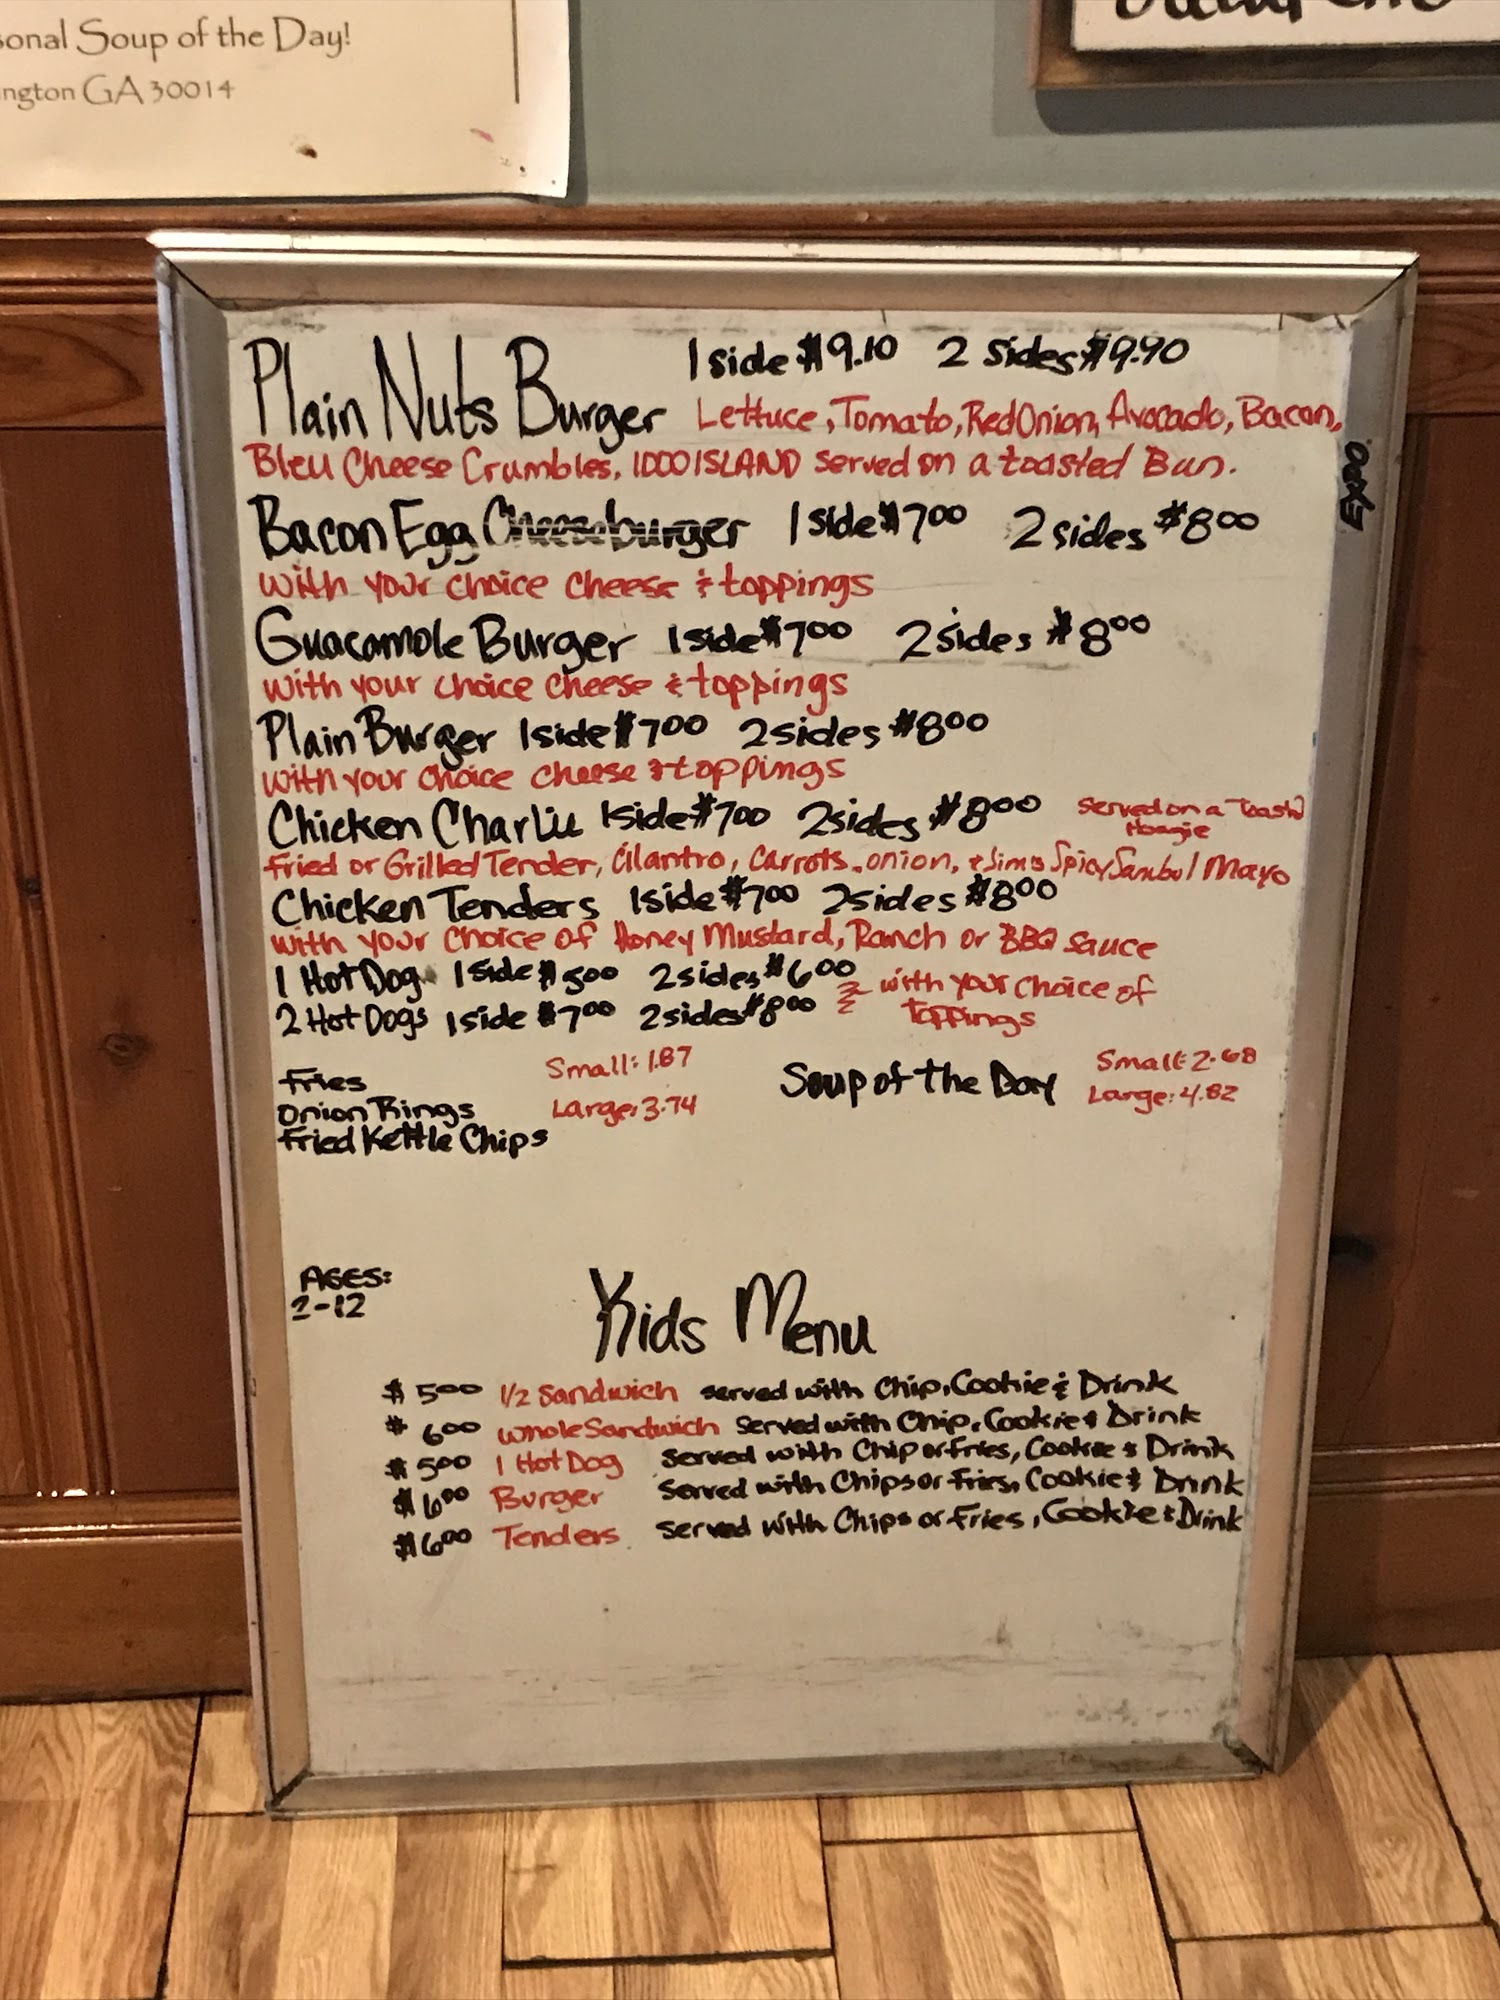 sonal Soup of the Day!
ngton GA 30014
Plain Nuts Burger 1 side $9.10 2 sides $9.90
Lettuce, Tomato, Red Onion, Avocado, Bacon,
Bleu Cheese Crumbles, 1000 ISLAND served on a toasted Bun.
EXPO
Bacon Egg Cheeseburger 1 side $7.00 2 sides $8.00
with your choice cheese & toppings
Guacamole Burger 1 side $7.00 2 sides $8.00
with your choice cheese & toppings
Plain Burger 1 side $7.00 2 sides $8.00
with your choice cheese & toppings
Chicken Charlie 1 side $7.00 2 sides $8.00 served on a Toastd
Hoagie
Fried or Grilled Tender, Cilantro, Carrots, onion, & Jim's Spicy Sambol Mayo
Chicken Tenders 1 side $7.00 2 sides $8.00
with your choice of Honey Mustard, Ranch or BBQ sauce
1 Hot Dog 1 side $5.00 2 sides $6.00 with your choice of
2 Hot Dogs 1 side $7.00 2 sides $8.00 Toppings
Fries Small: 1.87 Soup of the Day Small: 2.68
Onion Rings Large: 3.74 Large: 4.82
Fried Kettle Chips
AGES:
2-12
Kids Menu
$5.00 1/2 Sandwich served with Chip, Cookie & Drink
$6.00 Whole Sandwich served with Chip, Cookie & Drink
$5.00 1 Hot Dog served with Chip or Fries, Cookie & Drink
$6.00 Burger served with Chips or Fries, Cookie & Drink
$6.00 Tenders served with Chips or Fries, Cookie & Drink